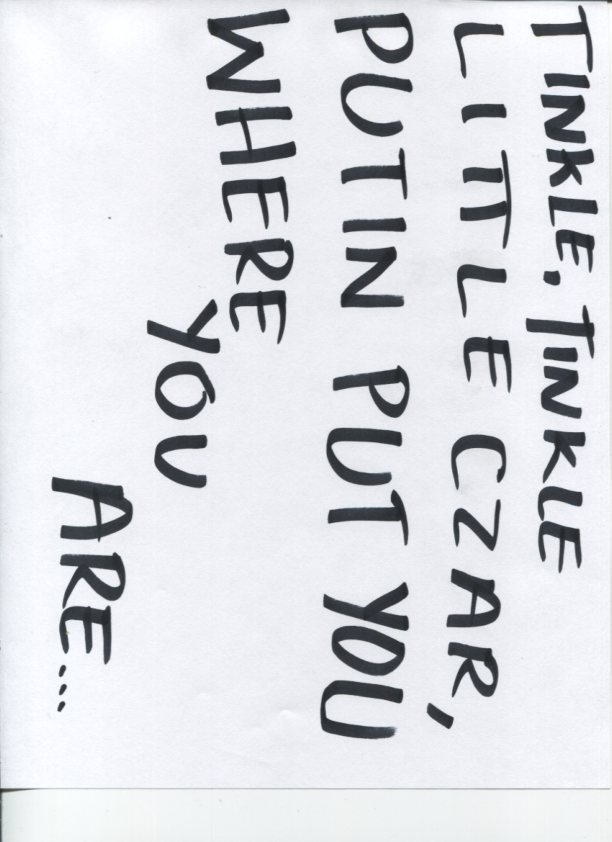 TINKLE, TINKLE
LITTLE CZAR,
PUTIN PUT YOU
WHERE
YOU
ARE...